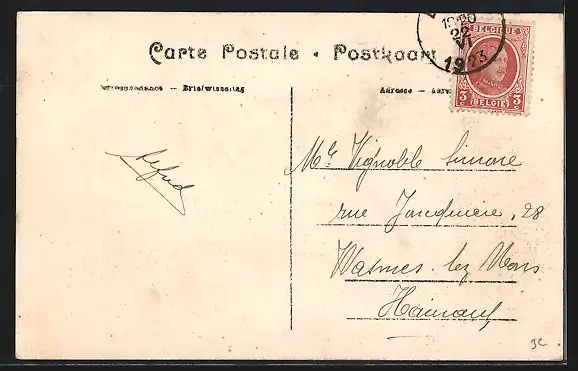 Carte Postale • Postkaart
Correspondance — Briefwisseling
Adresse —
19-20
22
VI
1923
BELGIQUE
3 3
BELGIË
Mlle Vignoble Simone
rue Jonquière, 28
Wasmes-lez Mons
Hainaut
3C